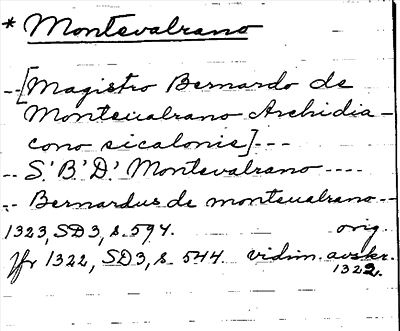 * Montevalrano
--[Magistro Bernardo de
Monteualrano Archidia-
cono sicalonie]---
-- S.' B.' D.' Montevalrano ----
-. Bernardus de monteualrano --
1323, SD3, s. 594. orig.
Jfr 1322, SD3, s. 544 vidim. avskr.
1322.